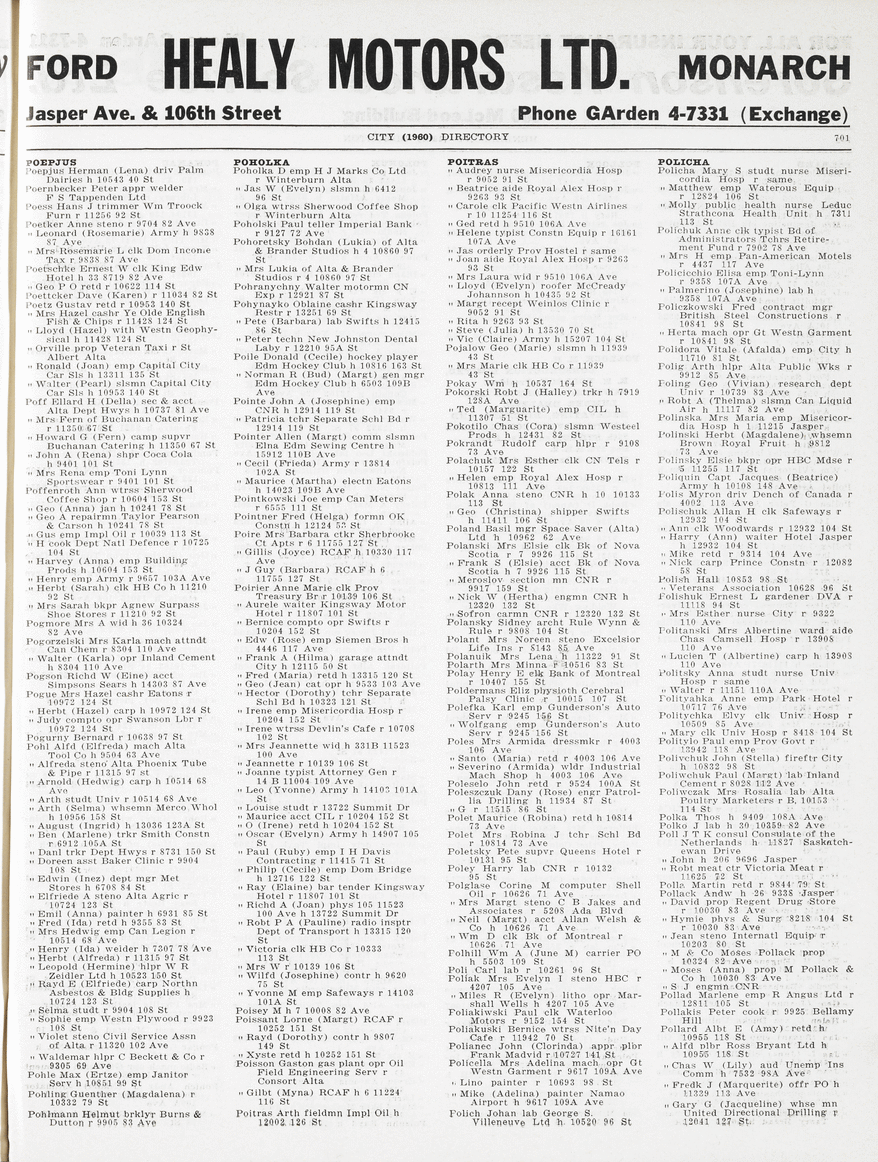 FORD HEALY MOTORS LTD. MONARCH
Jasper Ave. & 106th Street Phone GArden 4-7331 (Exchange)
CITY (1960) DIRECTORY 701
POEPJUS
Poepjus Herman (Lena) driv Palm
Dairies h 10543 40 St
Poernbecker Peter appr welder
F S Tappenden Ltd
Poess Hans J trimmer Wm Trock
Furn r 11256 92 St
Poetker Anne steno r 9704 82 Ave
" Leonard (Rosemarie) Army h 9838
87 Ave
" Mrs Rosemarie L clk Dom Income
Tax r 9838 87 Ave
Poetschke Ernest W clk King Edw
Hotel h 33 8719 82 Ave
" Geo P O retd r 10622 114 St
Poettcker Dave (Karen) r 11034 82 St
Poetz Gustav retd r 10953 140 St
" Mrs Hazel cashr Ye Olde English
Fish & Chips r 11428 124 St
" Lloyd (Hazel) with Westn Geophy-
sical h 11428 124 St
" Orville prop Veteran Taxi r St
Albert Alta
" Ronald (Joan) emp Capital City
Car Sls h 13311 135 St
" Walter (Pearl) slsmn Capital City
Car Sls h 10953 140 St
Poff Ellard H (Della) sec & acct
Alta Dept Hwys h 10737 81 Ave
" Mrs Fern of Buchanan Catering
r 11350 67 St
" Howard G (Fern) camp supvr
Buchanan Catering h 11350 67 St
" John A (Rena) shpr Coca Cola
h 9401 101 St
" Mrs Rena emp Toni Lynn
Sportswear r 9401 101 St
Poffenroth Ann wtrss Sherwood
Coffee Shop r 10604 153 St
" Geo (Anna) jan h 10241 78 St
" Geo A repairmn Taylor Pearson
& Carson h 10241 78 St
" Gus emp Impl Oil r 10039 113 St
" H cook Dept Natl Defence r 10725
104 St
" Harvey (Anna) emp Building
Prods h 10604 153 St
" Henry emp Army r 9657 103A Ave
" Herbt (Sarah) clk HB Co h 11210
92 St
" Mrs Sarah bkpr Agnew Surpass
Shoe Stores r 11210 92 St
Pogmore Mrs A wid h 36 10324
82 Ave
Pogorzelski Mrs Karla mach attndt
Can Chem r 8304 110 Ave
" Walter (Karla) opr Inland Cement
h 8304 110 Ave
Pogson Richd W (Eine) acct
Simpsons Sears h 14303 87 Ave
Pogue Mrs Hazel cashr Eatons r
10972 124 St
" Herbt (Hazel) carp h 10972 124 St
" Judy compto opr Swanson Lbr r
10972 124 St
Pogurny Bernard r 10638 97 St
Pohl Alfd (Elfreda) mach Alta
Tool Co h 9504 63 Ave
" Alfreda steno Alta Phoenix Tube
& Pipe r 11315 97 st
" Arnold (Hedwig) carp h 10514 68
Ave
" Arth studt Univ r 10514 68 Ave
" Arth (Selma) whsemn Merco Whol
h 10956 158 St
" August (Ingrid) h 13036 123A St
" Ben (Marlene) trkr Smith Constn
r 6912 105A St
" Danl trkr Dept Hwys r 8731 150 St
" Doreen asst Baker Clinic r 9904
108 St
" Edwin (Inez) dept mgr Met
Stores h 6708 84 St
" Elfriede A steno Alta Agric r
10724 123 St
" Emil (Anna) painter h 6931 85 St
" Fred (Ida) retd h 9355 83 St
" Mrs Hedwig emp Can Legion r
10514 68 Ave
" Henry (Ida) weider h 7307 78 Ave
" Herbt (Alfreda) r 11315 97 St
" Leopold (Hermine) hlpr W R
Zeidler Ltd h 10523 150 St
" Rayd E (Elfriede) carp Northn
Asbestos & Bldg Supplies h
10724 123 St
" Selma studt r 9904 108 St
" Sophie emp Westn Plywood r 9923
108 St
" Violet steno Civil Service Assn
of Alta r 11320 102 Ave
" Waldemar hlpr C Beckett & Co r
9305 69 Ave
Pohle Max (Ertze) emp Janitor
Serv h 10851 99 St
Pohling Guenther (Magdalena) r
10332 79 St
Pohlmann Helmut brklyr Burns &
Dutton r 9905 83 Ave
POHOLKA
Poholka D emp H J Marks Co Ltd
r Winterburn Alta
" Jas W (Evelyn) slsmn h 6412
96 St
" Olga wtrss Sherwood Coffee Shop
r Winterburn Alta
Poholski Paul teller Imperial Bank
r 9127 72 Ave
Pohoretsky Bohdan (Lukia) of Alta
& Brander Studios h 4 10860 97
St
" Mrs Lukia of Alta & Brander
Studios r 4 10860 97 St
Pohranychny Walter motormn CN
Exp r 12921 87 St
Pohynayko Oblaine cashr Kingsway
Restr r 13251 69 St
" Pete (Barbara) lab Swifts h 12415
86 St
" Peter techn New Johnston Dental
Laby r 12210 95A St
Poile Donald (Cecile) hockey player
Edm Hockey Club h 10816 163 St
" Norman R (Bud) (Margt) gen mgr
Edm Hockey Club h 6503 109B
Ave
Pointe John A (Josephine) emp
CNR h 12914 119 St
" Patricia tchr Separate Schl Bd r
12914 119 St
Pointer Allen (Margt) comm slsmn
Elna Edm Sewing Centre h
15912 110B Ave
" Cecil (Frieda) Army r 13814
102A St
" Maurice (Martha) electn Eatons
h 14023 109B Ave
Pointkowski Joe emp Can Meters
r 6555 111 St
Pointner Fred (Helga) formn OK
Constn h 12124 53 St
Poire Mrs Barbara ctkr Sherbrooke
Ct Apts r 6 11755 127 St
" Gillis (Joyce) RCAF h 10330 117
Ave
" J Guy (Barbara) RCAF h 6
11755 127 St
Poirier Anne Marie clk Prov
Treasury Br r 10139 106 St
" Aurele waiter Kingsway Motor
Hotel r 11807 101 St
" Bernice compto opr Swifts r
10204 152 St
" Edw (Rose) emp Siemen Bros h
4446 117 Ave
" Frank A (Hilma) garage attndt
City h 12115 50 St
" Fred (Maria) retd h 13315 120 St
" Geo (Jean) cat opr h 9533 103 Ave
" Hector (Dorothy) tchr Separate
Schl Bd h 10323 121 St
" Irene emp Misericordia Hosp r
10204 152 St
" Irene wtrss Devlin's Cafe r 10708
102 St
" Mrs Jeannette wid h 331B 11523
100 Ave
" Jeannette r 10139 106 St
" Joanne typist Attorney Gen r
14 B 11004 109 Ave
" Leo (Yvonne) Army h 14103 101A
St
" Louise studt r 13722 Summit Dr
" Maurice acct CIL r 10204 152 St
" O (Irene) retd h 10204 152 St
" Oscar (Evelyn) Army h 14907 105
St
" Paul (Ruby) emp I H Davis
Contracting r 11415 71 St
" Philip (Cecile) emp Dom Bridge
h 12716 122 St
" Ray (Elaine) bar tender Kingsway
Hotel r 11807 101 St
" Richd A (Joan) phys 105 11523
100 Ave h 13722 Summit Dr
" Robt P A (Pauline) radio insptr
Dept of Transport h 13315 120
St
" Victoria clk HB Co r 10333
113 St
" Mrs W r 10139 106 St
" Wilfd (Josephine) contr h 9620
75 St
" Yvonne M emp Safeways r 14103
101A St
Poisey M h 7 10008 82 Ave
Poissant Lorne (Margt) RCAF r
10252 151 St
" Rayd (Dorothy) contr h 9807
149 St
" Xyste retd h 10252 151 St
Poisson Gaston gas plant opr Oil
Field Engineering Serv r
Consort Alta
" Gilbt (Myna) RCAF h 6 11224
116 St
Poitras Arth fieldmn Impl Oil h
12002 126 St
POITRAS
" Audrey nurse Misericordia Hosp
r 9052 91 St
" Beatrice aide Royal Alex Hosp r
9263 93 St
" Carole clk Pacific Westn Airlines
r 10 11254 116 St
" Ged retd h 9510 106A Ave
" Helene typist Constn Equip r 16161
107A Ave
" Jas orderly Prov Hostel r same
" Joan aide Royal Alex Hosp r 9263
93 St
" Mrs Laura wid r 9510 106A Ave
" Lloyd (Evelyn) roofer McCready
Johannson h 10435 92 St
" Margt recept Weinlos Clinic r
9052 91 St
" Rita h 9263 93 St
" Steve (Julia) h 13530 70 St
" Vic (Claire) Army h 15207 104 St
Pojalow Geo (Marie) slsmn h 11939
43 St
" Mrs Marie clk HB Co r 11939
43 St
Pokay Wm h 10537 164 St
Pokorski Robt J (Halley) trkr h 7919
128A Ave
" Ted (Marguerite) emp CIL h
11307 51 St
Pokotilo Chas (Cora) slsmn Westeel
Prods h 12431 82 St
Pokrandt Rudolf carp hlpr r 9108
73 Ave
Polachuk Mrs Esther clk CN Tels r
10157 122 St
" Helen emp Royal Alex Hosp r
10813 111 Ave
Polak Anna steno CNR h 10 10133
113 St
" Geo (Christina) shipper Swifts
h 11411 106 St
Poland Basil mgr Space Saver (Alta)
Ltd h 10962 62 Ave
Polanski Mrs Elsie clk Bk of Nova
Scotia r 7 9926 115 St
" Frank S (Elsie) acct Bk of Nova
Scotia h 7 9926 115 St
" Meroslov section mn CNR r
9917 159 St
" Nick W (Hertha) engmn CNR h
12320 132 St
" Sofron carmn CNR r 12320 132 St
Polansky Sidney archt Rule Wynn &
Rule r 9808 104 St
Polant Mrs Noreen steno Excelsior
Life Ins r 8143 85 Ave
Polanuik Mrs Lena h 11322 91 St
Polarth Mrs Minna r 10516 83 St
Polay Henry E clk Bank of Montreal
r 10407 155 St
Poldermans Eliz physioth Cerebral
Palsy Clinic r 10015 107 St
Polefka Karl emp Gunderson's Auto
Serv r 9245 156 St
" Wolfgang emp Gunderson's Auto
Serv r 9245 156 St
Poles Mrs Armida dressmkr r 4003
106 Ave
" Santo (Maria) retd r 4003 106 Ave
" Severino (Armida) wldr Industrial
Mach Shop h 4003 106 Ave
Poleselo John retd r 9524 100A St
Poleszczuk Dany (Rose) engr Patrol-
lia Drilling h 11934 87 St
" G r 11515 86 St
Polet Maurice (Robina) retd h 10814
73 Ave
Polet Mrs Robina J tchr Schl Bd
r 10814 73 Ave
Poletsky Pete supvr Queens Hotel r
10131 95 St
Poley Harry lab CNR r 10132
95 St
Polglase Corine M computer Shell
Oil r 10626 71 Ave
" Mrs Margt steno C B Jakes and
Associates r 5208 Ada Blvd
" Neil (Margt) acct Allan Welsh &
Co h 10626 71 Ave
" Wm D clk Bk of Montreal r
10626 71 Ave
Polhill Wm A (June M) carrier PO
h 5503 109 St
Poli Carl lab r 10261 96 St
Poliak Mrs Evelyn I steno HBC r
4207 105 Ave
" Miles R (Evelyn) litho opr Mar-
shall Wells h 4207 105 Ave
Poliakiwski Paul clk Waterloo
Motors r 9152 154 St
Poliakuski Bernice wtrss Nite'n Day
Cafe r 11942 70 St
Polianec John (Clorinda) appr plbr
Frank Madvid r 10727 141 St
Policella Mrs Adelina mach opr Gt
Westn Garment r 9617 109A Ave
" Lino painter r 10693 98 St
" Mike (Adelina) painter Namao
Airport h 9617 109A Ave
Polich Johan lab George S.
Villeneuve Ltd h 10520 96 St
POLICHA
Policha Mary S studt nurse Miseri-
cordia Hosp r same
" Matthew emp Waterous Equip
r 12824 106 St
" Molly public health nurse Leduc
Strathcona Health Unit h 7311
113 St
Polichuk Anne clk typist Bd of
Administrators Tchrs Retire-
ment Fund r 7902 78 Ave
" Mrs H emp Pan-American Motels
r 4437 117 Ave
Policicchio Elisa emp Toni-Lynn
r 9358 107A Ave
" Palmerino (Josephine) lab h
9358 107A Ave
Policzkowski Fred contract mgr
British Steel Constructions r
10841 98 St
" Herta mach opr Gt Westn Garment
r 10841 98 St
Polidora Vitale (Afalda) emp City h
11710 81 St
Polig Arth hlpr Alta Public Wks r
9912 85 Ave
Poling Geo (Vivian) research dept
Univ r 10739 83 Ave
" Robt A (Thelma) slsmn Can Liquid
Air h 11117 82 Ave
Polinska Mrs Maria emp Misericor-
dia Hosp h 1 11215 Jasper
Polinski Herbt (Magdalene) whsemn
Brown Royal Fruit h 9812
73 Ave
Polinsky Elsie bkpr opr HBC Mdse r
5 11255 117 St
Poliquin Capt Jacques (Beatrice)
Army h 10108 148 Ave
Polis Myron driv Dench of Canada r
4002 113 Ave
Polischuk Allan H clk Safeways r
12932 104 St
" Ann clk Woodwards r 12932 104 St
" Harry (Ann) waiter Hotel Jasper
h 12932 104 St
" Mike retd r 9314 104 Ave
" Nick carp Prince Constn r 12082
58 St
Polish Hall 10853 98 St
" Veterans Association 10628 96 St
Polishuk Ernest L gardener DVA r
11118 94 St
" Mrs Esther nurse City r 9322
110 Ave
Politanski Mrs Albertine ward aide
Chas Camsell Hosp r 13908
110 Ave
" Lucien T (Albertine) carp h 13908
110 Ave
Politsky Anna studt nurse Univ
Hosp r same
" Walter r 11151 110A Ave
Polityahka Anne emp Park Hotel r
10717 76 Ave
Politychka Elvy clk Univ Hosp r
10509 85 Ave
" Mary clk Univ Hosp r 8418 104 St
Politylo Paul emp Prov Govt r
13942 118 Ave
Polivchuk John (Stella) fireftr City
h 10832 98 St
Poliwchuk Paul (Margt) lab Inland
Cement r 8028 112 Ave
Poliwczak Mrs Rosalia lab Alta
Poultry Marketers r B, 10153
114 St
Polka Thos h 9409 108A Ave
Polko J lab h 30 10359 82 Ave
Poll J T K consul Consulate of the
Netherlands h 11827 Saskatch-
ewan Drive
" John h 206 9696 Jasper
" Robt meat ctr Victoria Meat r
11625 72 St
Polla Martin retd r 9844 79 St
Pollack Andw h 26 9338 Jasper
" David prop Regent Drug Store
r 10030 83 Ave
" Hymie phys & Surg 8218 104 St
r 10030 83 Ave
" Jean steno Internatl Equip r
10203 80 St
" M & Co Moses Pollack prop
10324 82 Ave
" Moses (Anna) prop M Pollack &
Co h 10030 83 Ave
" S J engmn CNR
Pollad Marlene emp R Angus Ltd r
12811 105 St
Pollakis Peter cook r 9925 Bellamy
Hill
Pollard Albt E (Amy) retd h
10955 118 St
" Alfd plbr Ross Bryant Ltd h
10955 118 St
" Chas W (Lily) aud Unemp Ins
Comm h 7532 98A Ave
" Fredk J (Marquerite) offr PO h
11339 113 Ave
" Gary G (Jacqueline) whse mn
United Directional Drilling r
12041 127 St